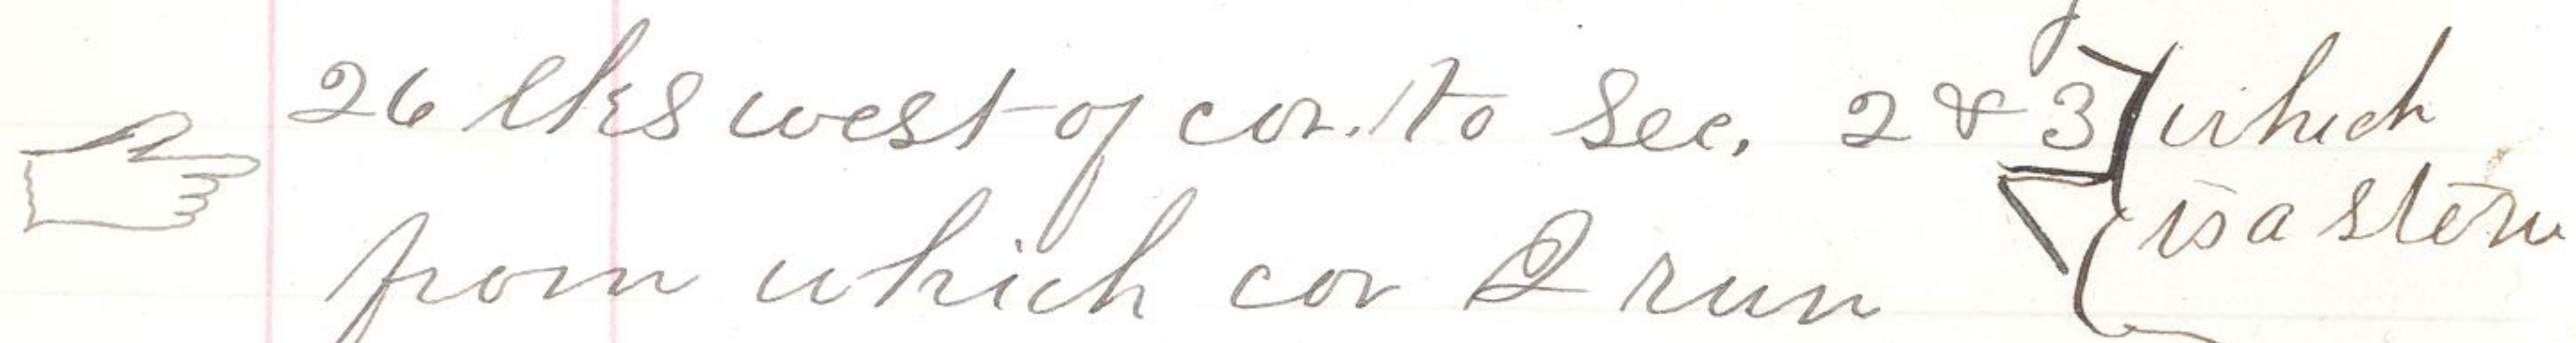 26 lks west of cor. to Sec. 2 & 3 which
is a stone
from which cor I run